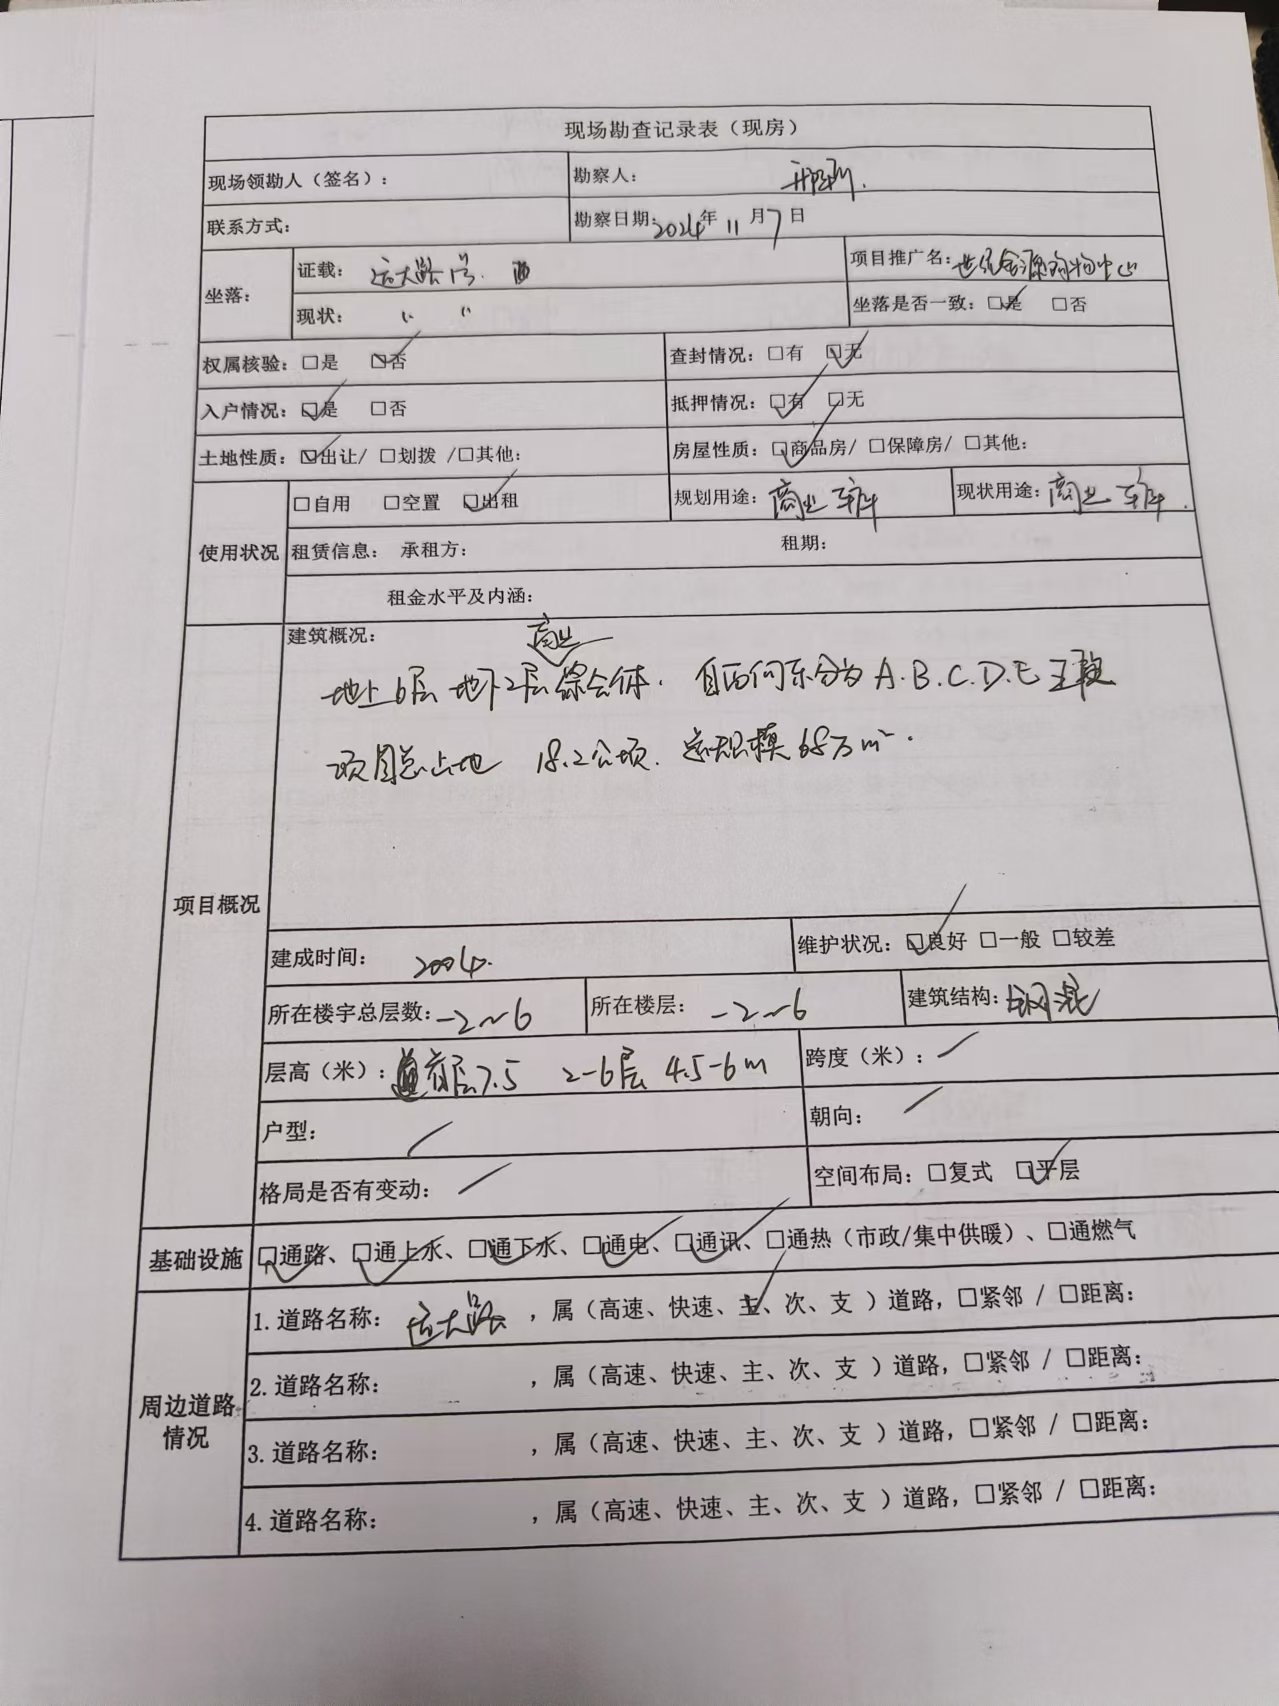 现场勘查记录表（现房）
现场领勘人（签名）： 勘察人：
联系方式： 勘察日期：2024年11月7日
坐落： 证载：远大路1号 项目推广名：世纪金源购物中心
现状：〃 〃 坐落是否一致：☑是 □否
权属核验：□是 ☑否 查封情况：□有 ☑无
入户情况：☑是 □否 抵押情况：☑有 □无
土地性质：☑出让/ □划拨 /□其他： 房屋性质：☑商品房/ □保障房/ □其他：
使用状况 □自用 □空置 ☑出租 规划用途：商业 车库 现状用途：商业 车库.
租赁信息： 承租方： 租期：
租金水平及内涵：
项目概况 建筑概况：
地上6层 地下2层商业综合体. 自西向东分为A.B.C.D.E五段
项目总占地 18.2公顷. 总规模68万m².
建成时间：2004. 维护状况：☑良好 □一般 □较差
所在楼宇总层数：-2~6 所在楼层：-2~6 建筑结构：钢混
层高（米）：首层7.5 2-6层 4.5-6m 跨度（米）：/
户型：/ 朝向：/
格局是否有变动：/ 空间布局：□复式 ☑平层
基础设施 ☑通路、☑通上水、☑通下水、☑通电、☑通讯、□通热（市政/集中供暖）、□通燃气
周边道路情况 1.道路名称：远大路，属（高速、快速、主、次、支）道路，□紧邻 / □距离：
2.道路名称： ，属（高速、快速、主、次、支）道路，□紧邻 / □距离：
3.道路名称： ，属（高速、快速、主、次、支）道路，□紧邻 / □距离：
4.道路名称： ，属（高速、快速、主、次、支）道路，□紧邻 / □距离：